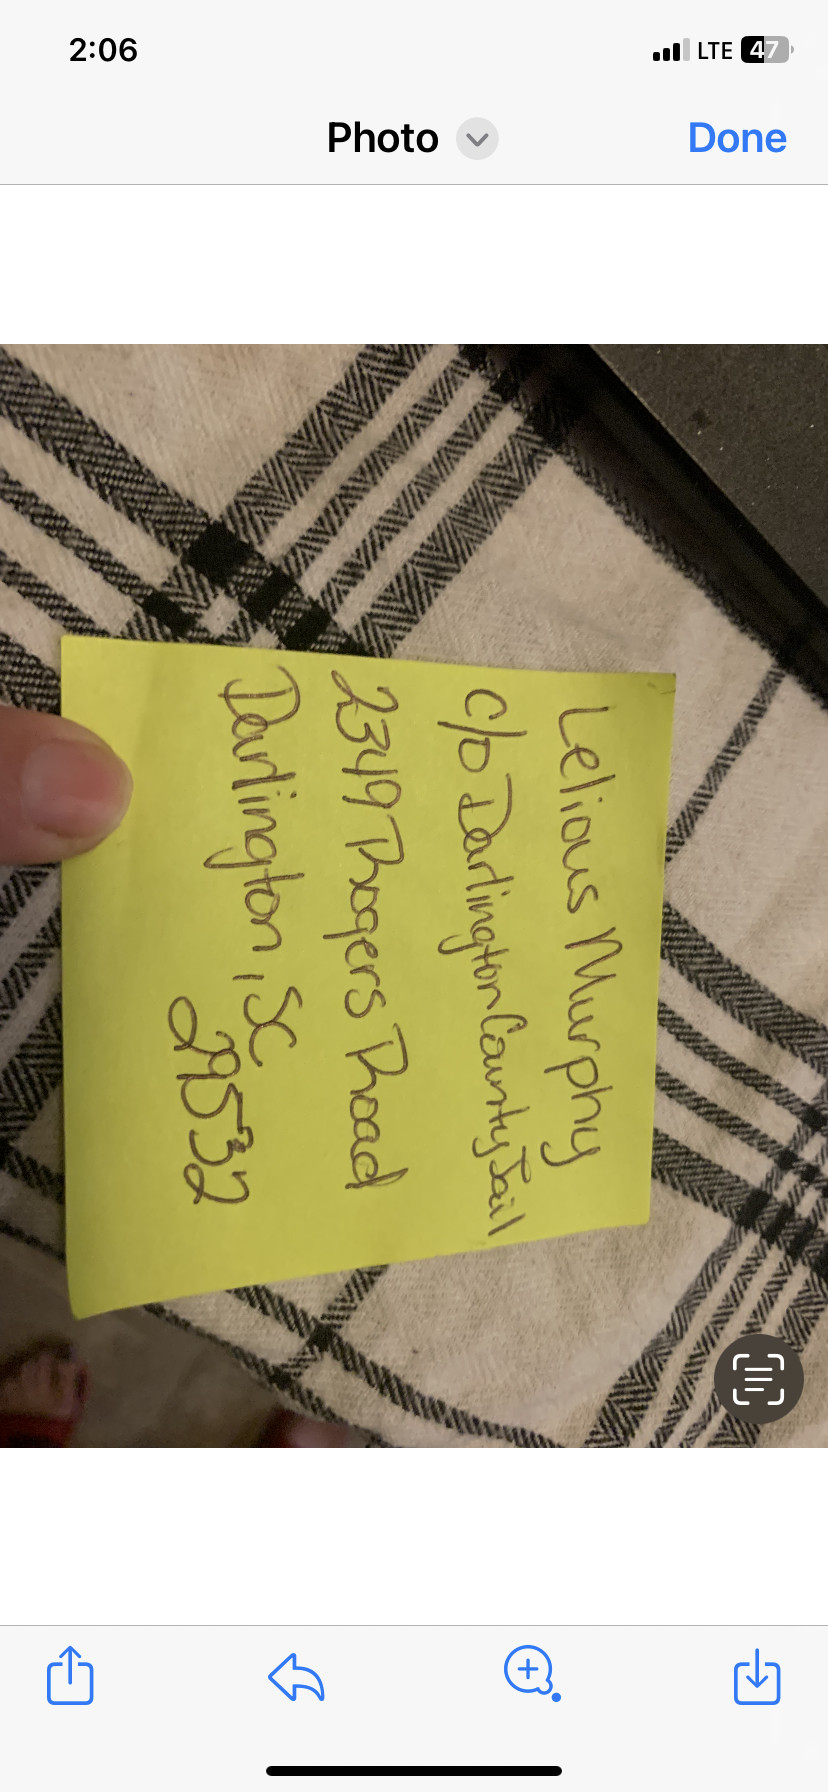 2:06
LTE 47
Photo
Done
Lelious Murphy
c/o Darlington County Jail
2349 Rogers Road
Darlington, SC
29532